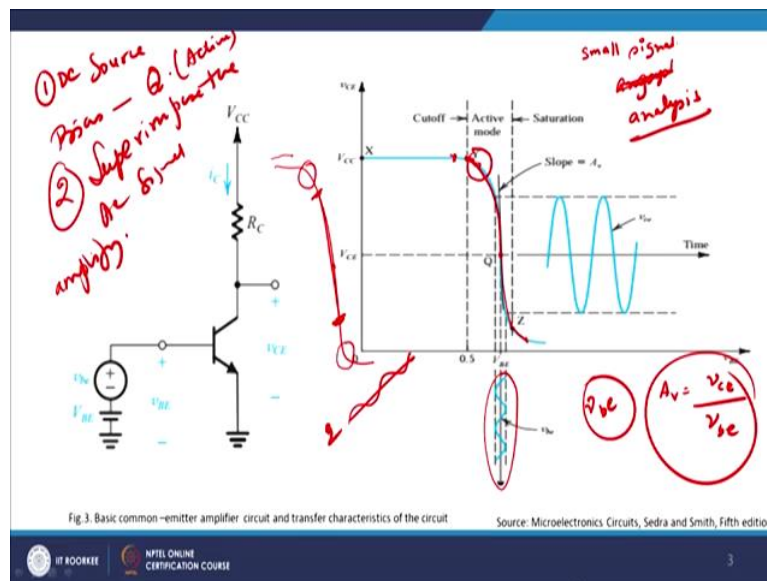 ① DC Source
Bias — Q. (Active)
② Superimpose the
AC Signal
amplify.
small signal
analysis
V_CC
i_C
R_C
+
v_CE
−
v_be
+
−
V_BE
+
v_BE
−
v_CE
Cutoff
Active
mode
Saturation
V_CC
X
Y
Slope = A_v
v_ce
Time
V_CE
Q
Z
0.5
V_BE
v_be
v_be
A_v = v_ce / v_be
Fig.3. Basic common –emitter amplifier circuit and transfer characteristics of the circuit
Source: Microelectronics Circuits, Sedra and Smith, Fifth edition
IIT ROORKEE
NPTEL ONLINE
CERTIFICATION COURSE
3